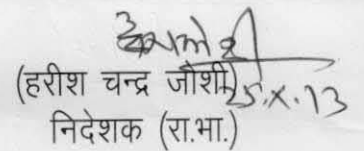 (हरीश चन्द्र जोशी)
25.X.13
निदेशक (रा.भा.)